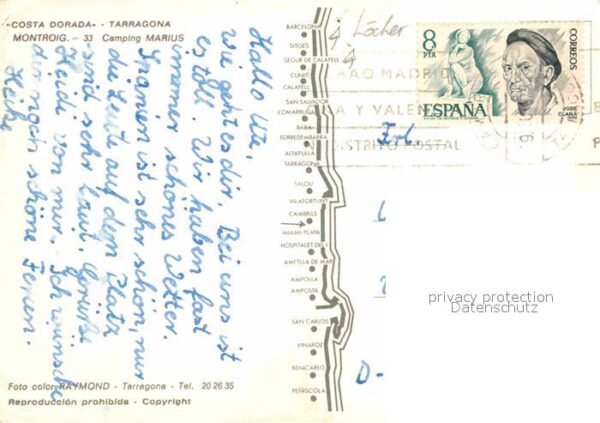 "COSTA DORADA" - TARRAGONA
MONTROIG. - 33 Camping MARIUS
Hallo Ute,
wie geht es dir. Bei uns ist
es toll. Wir haben fast
immer schönes Wetter.
Spanien ist sehr schön, nur
die Leute auf dem Platz
sind sehr laut. Grüße
Heidi von mir. Ich wünsche
dir noch schöne Ferien.
Heike
Foto color RAYMOND - Tarragona - Tel. 20 26 35
Reproducción prohibida - Copyright
BARCELONA
SITGES
SEGUR DE CALAFELL
CUNIT
CALAFELL
SAN SALVADOR
COMARRUGA
BARA
TORREDEMBARRA
ALTAFULLA
TARRAGONA
SALOU
VILAFORTUNY
CAMBRILS
MIAMI-PLAYA
HOSPITALET DEL I.
AMETLLA DE MAR
AMPOLLA
AMPOSTA
SAN CARLOS
VINAROZ
BENICARLO
PEÑISCOLA
4 Löcher
8
PTA
ESPAÑA
CORREOS
JOSE
CLARA
BAO MADRID
A Y VALEN
DISTRITO POSTAL
D-
privacy protection
Datenschutz